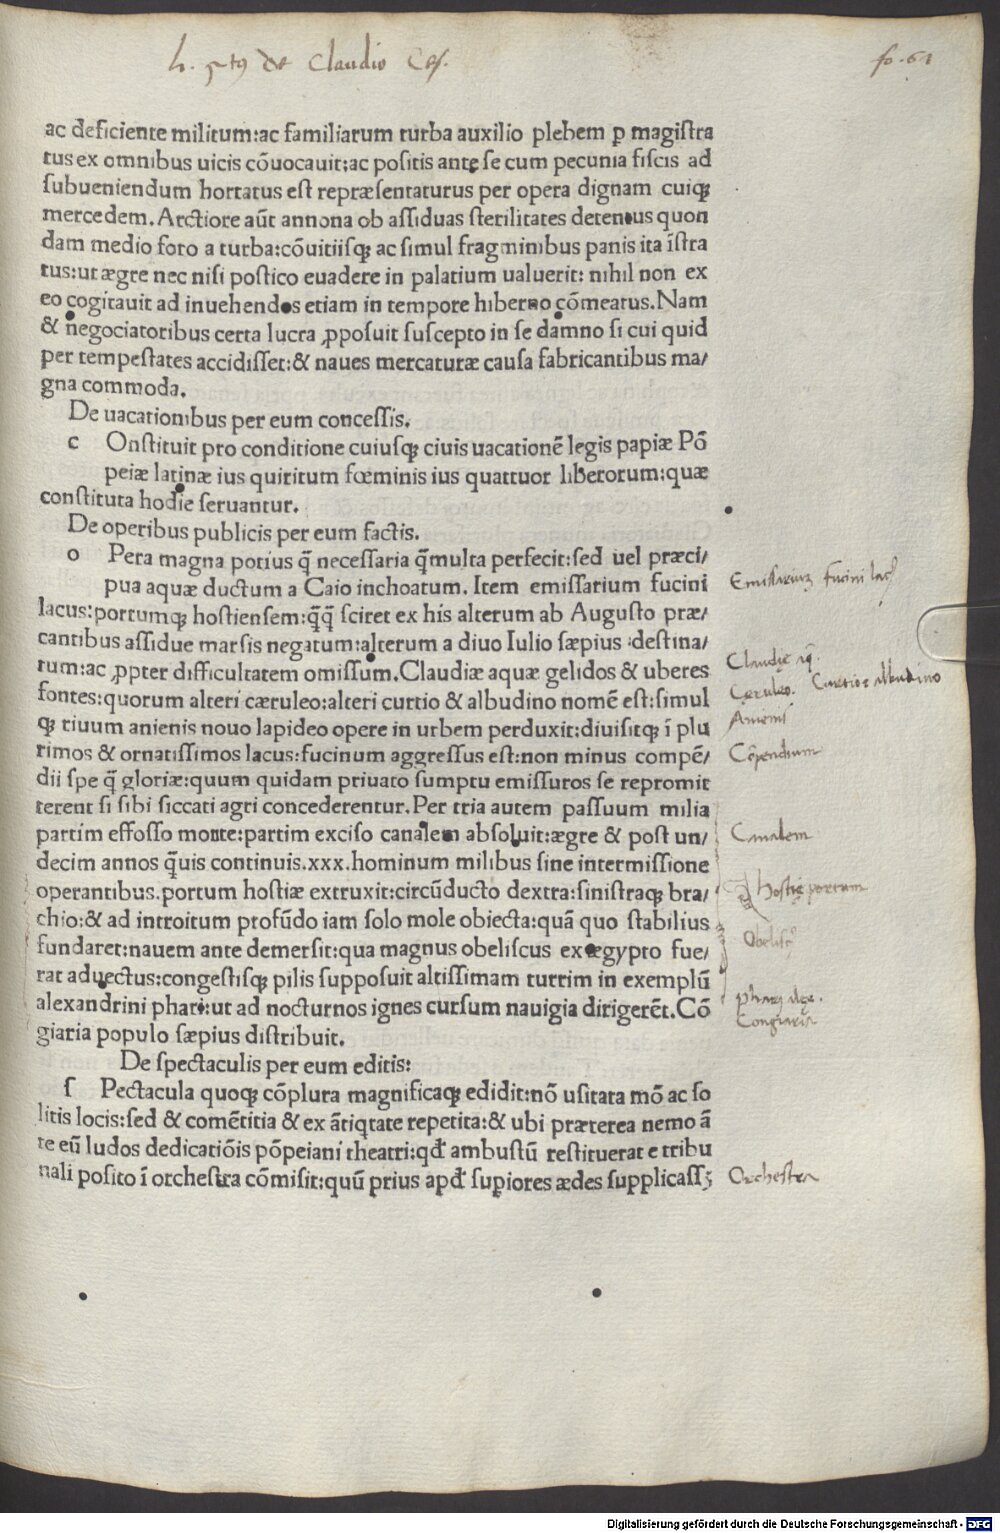 de Claudio Ces.
fo. 61
ac deficiente militum:ac familiarum turba auxilio plebem ꝑ magiſtra
tus ex omnibus uicis cōuocauit:ac poſitis ante ſe cum pecunia fiſcis ad
ſubueniendum hortatus eſt repræſentaturus per opera dignam cuiqꝫ
mercedem. Arctiore aūt annona ob aſſiduas ſterilitates detentus quon
dam medio foro a turba:cōuitiiſqꝫ ac ſimul fragminibus panis ita īſtra
tus:ut ægre nec niſi poſtico euadere in palatium ualuerit: nihil non ex
eo cogitauit ad inuehendos etiam in tempore hiberno cōmeatus. Nam
& negociatoribus certa lucra ꝓpoſuit ſuſcepto in ſe damno ſi cui quid
per tempeſtates accidiſſet:& naues mercaturæ cauſa fabricantibus ma/
gna commoda.
De uacationibus per eum conceſſis.
c Onſtituit pro conditione cuiuſqꝫ ciuis uacationē legis papiæ Pō
peiæ latinæ ius quiritum fœminis ius quattuor liberorum:quæ
conſtituta hodie ſeruantur.
De operibus publicis per eum factis.
o Pera magna potius q̄ neceſſaria q̄multa perfecit:ſed uel præci/
pua aquæ ductum a Caio inchoatum. Item emiſſarium fucini
lacus:portumqꝫ hoſtienſem:q̄q̄ ſciret ex his alterum ab Auguſto præ/
cantibus aſſidue marſis negatum:alterum a diuo Iulio ſæpius deſtina/
tum:ac ꝓpter difficultatem omiſſum. Claudiæ aquæ gelidos & uberes
fontes:quorum alteri cæruleo:alteri curtio & albudino nomē eſt:ſimul
qꝫ riuum anienis nouo lapideo opere in urbem perduxit:diuiſitqꝫ ī plu
rimos & ornatiſſimos lacus:fucinum aggreſſus eſt:non minus compē/
dii ſpe q̄ gloriæ:quum quidam priuato ſumptu emiſſuros ſe repromit
terent ſi ſibi ſiccati agri concederentur. Per tria autem paſſuum milia
partim effoſſo monte:partim exciſo canalem abſoluit:ægre & poſt un/
decim annos q̄uis continuis.xxx.hominum milibus ſine intermiſſione
operantibus. portum hoſtiæ extruxit:circūducto dextra:ſiniſtraqꝫ bra/
chio:& ad introitum profūdo iam ſolo mole obiecta:quā quo ſtabilius
fundaret:nauem ante demerſit:qua magnus obeliſcus ex ægypto fue/
rat aduectus:congeſtiſqꝫ pilis ſuppoſuit altiſſimam turrim in exemplū
alexandrini phari:ut ad nocturnos ignes curſum nauigia dirigerēt. Cō
giaria populo ſæpius diſtribuit.
De ſpectaculis per eum editis:
ſ Pectacula quoqꝫ cōplura magnificaqꝫ edidit:nō uſitata mō ac ſo
litis locis:ſed & comētitia & ex ātiqtate repetita:& ubi præterea nemo ā
te eū ludos dedicatiōis pōpeiani theatri:qđ ambuſtū reſtituerat e tribu
nali poſito ī orcheſtra cōmiſit:quū prius apđ ſuꝑiores ædes ſupplicaſſꝫ
Emiſſariuꝫ fucini lac
Claudię aq̄
Cęruleo. Curtio & albudino
Anienis
Cōpendium
Canalem
Hoſtię portum
Obeliſc
Congiaria
Orcheſtra
Digitalisierung gefördert durch die Deutsche Forschungsgemeinschaft - DFG